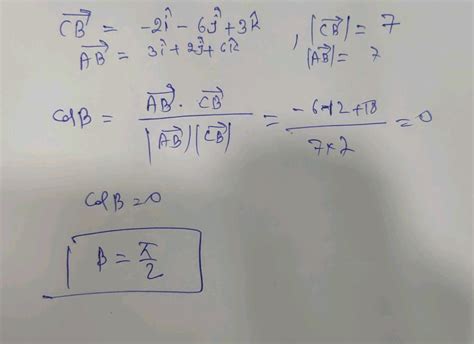 $\overrightarrow{CB} = -2\hat{i} - 6\hat{j} + 3\hat{k}$ , $|\overrightarrow{CB}| = 7$
$\overrightarrow{AB} = 3\hat{i} + 2\hat{j} + 6\hat{k}$ $|\overrightarrow{AB}| = 7$
$\cos B = \frac{\overrightarrow{AB} \cdot \overrightarrow{CB}}{|\overrightarrow{AB}||\overrightarrow{CB}|} = \frac{-6-12+18}{7 \times 7} = 0$
$\cos B = 0$
$B = \frac{\pi}{2}$